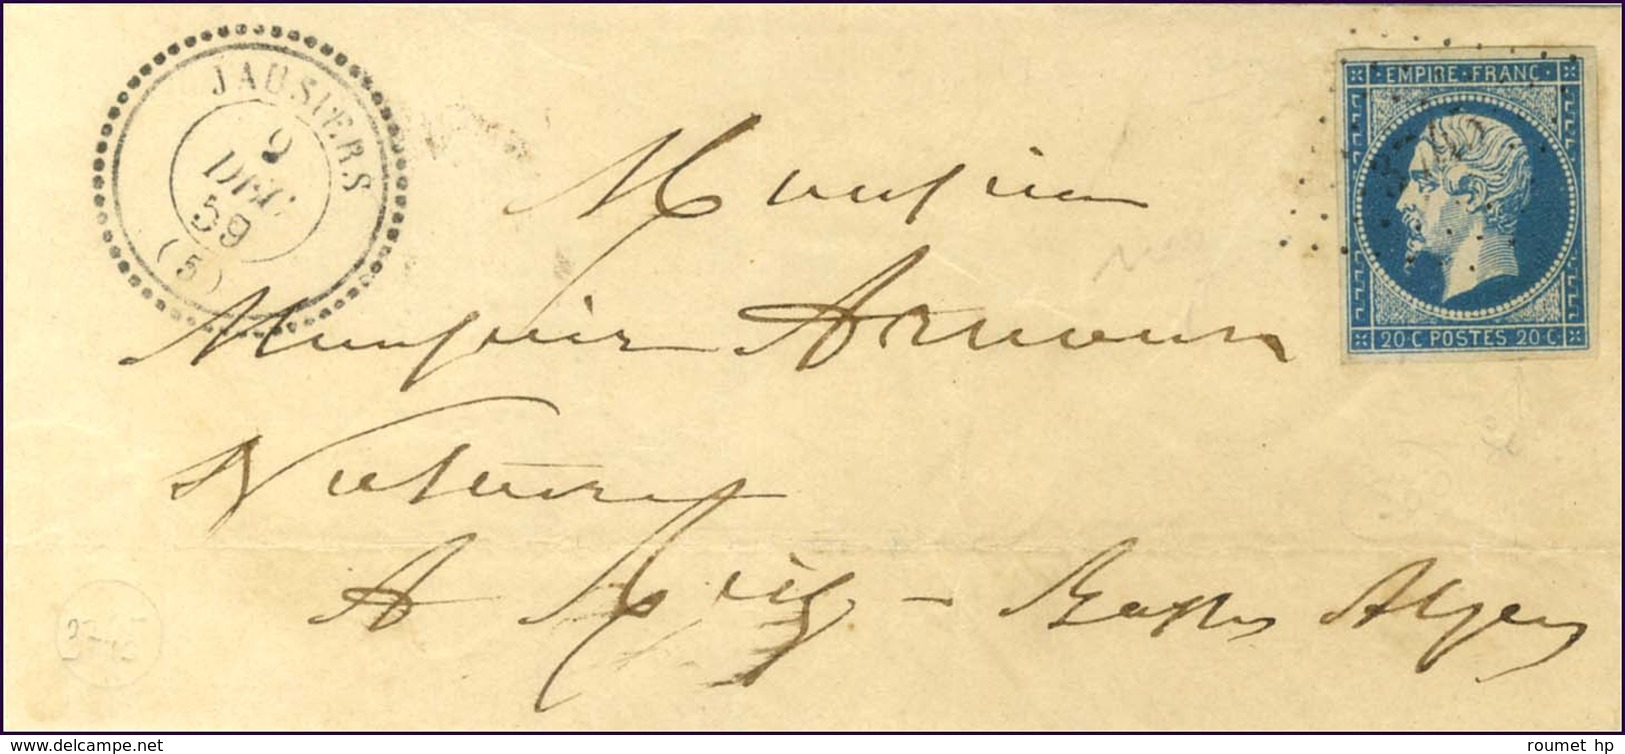 JAUSIERS
2
DEC.
59
(5)
EMPIRE FRANC
20 C POSTES 20 C
Monsieur
Monsieur Arnoux
Notaire
A
Basses Alpes
www.delcampe.net
roumet hp